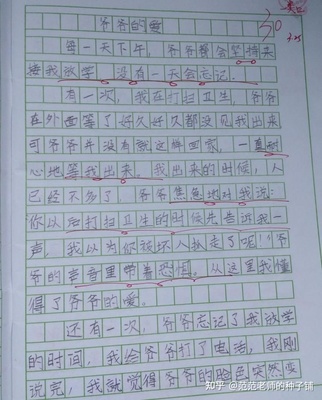 爷爷的爱
30
每一天下午，爷爷都会坚持来
接我放学，没有一天会忘记。
有一次，我在打扫卫生，爷爷
在外面等了好久好久都没见我出来
可爷爷并没有就这样回家，一直耐
心地等我出来。我出来的时候，人
已经不多了，爷爷焦急地对我说：
你以后打扫卫生的时候先告诉我一
声，我以为你被坏人抓走了呢！爷
爷的声音里带着恐惧。从这里我懂
得了爷爷的爱。
还有一次，爷爷忘记了我放学
的时间，我给爷爷打了电话，我刚
说完，我就觉得爷爷的脸色突然变
知乎 @范范老师的种子铺